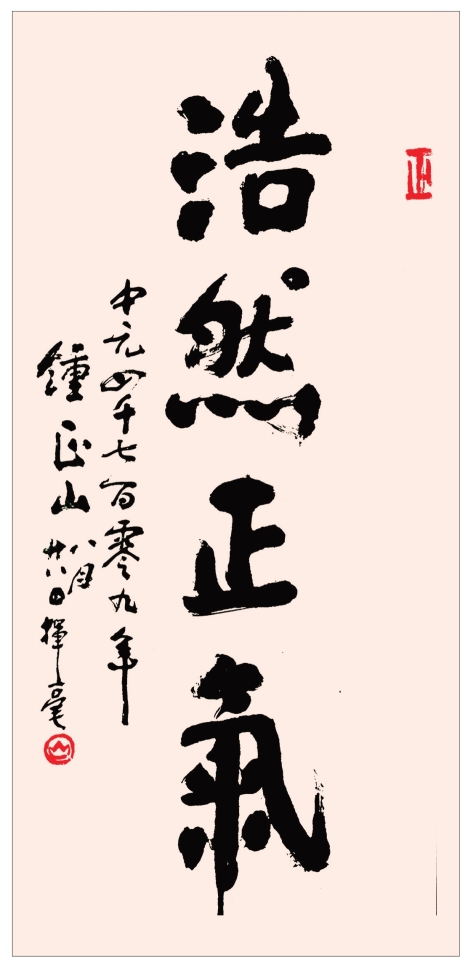 正
浩然正氣
中元四千七百零九年
八月
鍾正山
廿八日揮毫
山